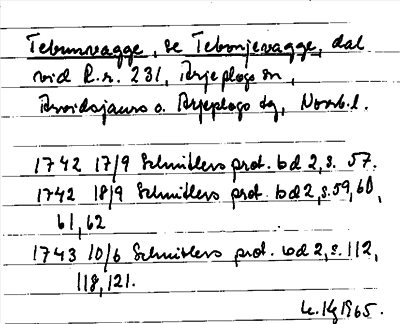 Tebunvagge, se Tebonjevagge, dal
vid R.r. 231, Arjeplogs sn,
Arvidsjaurs o. Arjeplogs tg, Norrb.l.
1742 17/9 Schnitlers prot. bd 2, s. 57.
1742 18/9 Schnitlers prot. bd 2, s. 59, 60,
61, 62
1743 10/6 Schnitlers prot. bd 2, s. 112,
118, 121.
1965.